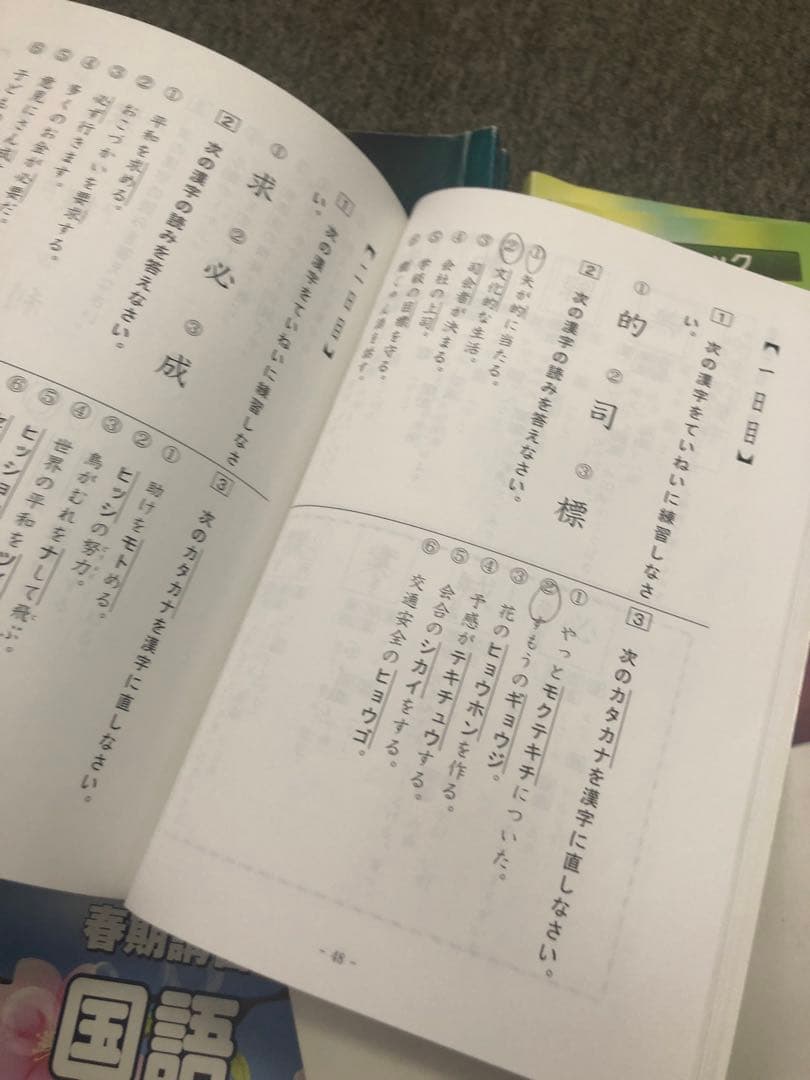 【一日目】
1 次の漢字をていねいに練習しなさ
い。
① 的 ② 司 ③ 標
2 次の漢字の読みを答えなさい。
① 矢が的に当たる。
② 文化的な生活。
③ 司会者が決まる。
④ 会社の上司。
⑤ 学級の目標を守る。
⑥
3 次のカタカナを漢字に直しなさい。
① やっとモクテキチについた。
② すもうのギョウジ。
③ 花のヒョウホンを作る。
④ 予感がテキチュウする。
⑤ 会合のシカイをする。
⑥ 交通安全のヒョウゴ。
- 48 -
【二日目】
1 次の漢字をていねいに練習しなさ
い。
① 求 ② 必 ③ 成
2 次の漢字の読みを答えなさい。
① 平和を求める。
② おこづかいを要求する。
③ 必ず行きます。
④ 多くのお金が必要だ。
⑤ 意見にさん成
⑥ 子ども
3 次のカタカナを漢字に直しなさい。
① 助けをモトめる。
② ヒッシの努力。
③ 鳥がむれをナして飛ぶ。
④ 世界の平和を
⑤ ヒッショ
⑥
春期講
国語
ック